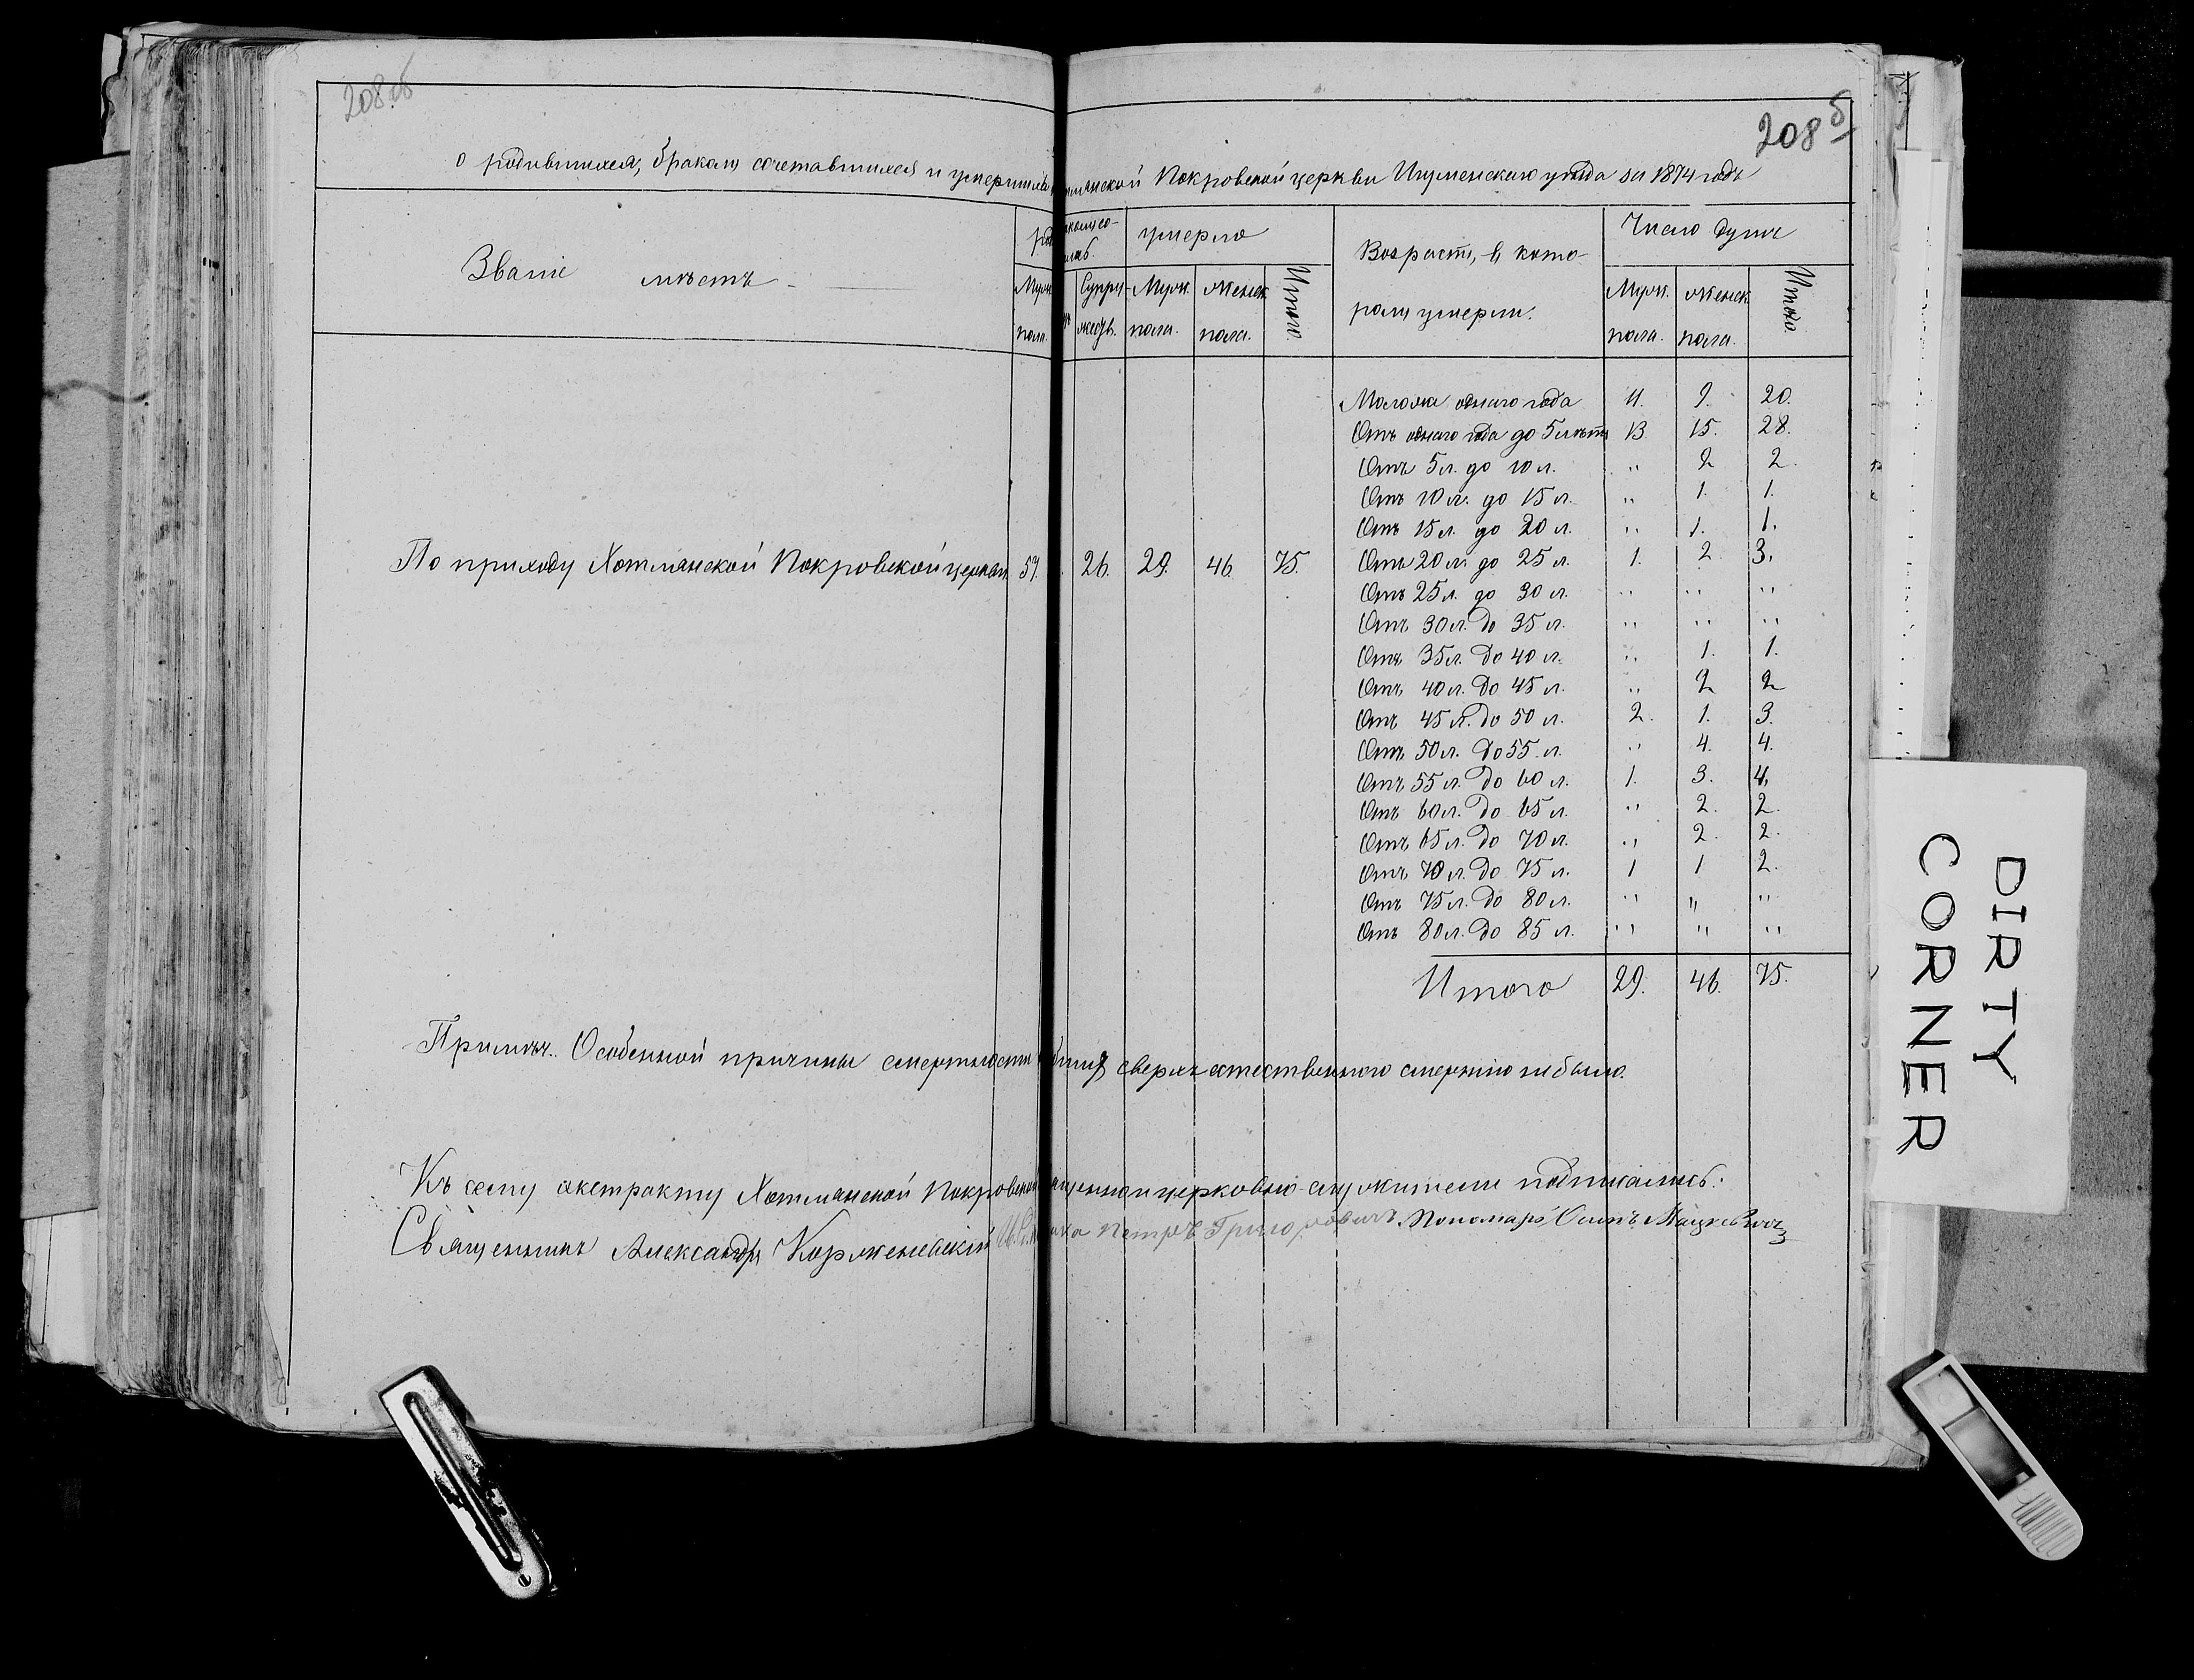 208об
208 б
о родившихся, бракам сочетавшихся и умерших Хотлянской Покровской церкви Игуменскаго уѣзда за 1874 годъ
Званіе мѣстъ
Муж. пола.
Супружествъ.
умерло
Муж. пола.
Женск. пола.
Итого.
Возрастъ, въ кото-
ромъ умерли.
Число душъ
Муж. пола.
Женск. пола.
Итого.
Моложе однаго года 11. 9. 20.
Отъ однаго года до 5 лѣтъ 13 15. 28.
Отъ 5 л. до 10 л. " 2 2.
Отъ 10 л. до 15 л. " 1. 1.
Отъ 15 л. до 20 л. " 1. 1.
По приходу Хотлянской Покровской церкви 57. 26. 29. 46. 75. Отъ 20 л. до 25 л. 1. 2. 3.
Отъ 25 л. до 30 л. " " "
Отъ 30 л. до 35 л. " " "
Отъ 35 л. до 40 л. " 1. 1.
Отъ 40 л. до 45 л. " 2 2
Отъ 45 л. до 50 л. 2. 1. 3.
Отъ 50 л. до 55 л. " 4. 4.
Отъ 55 л. до 60 л. 1. 3. 4.
Отъ 60 л. до 65 л. " 2. 2.
Отъ 65 л. до 70 л. " 2. 2.
Отъ 70 л. до 75 л. 1 1 2.
Отъ 75 л. до 80 л. " " "
Отъ 80 л. до 85 л. " " "
Итого 29. 46. 75.
Примѣч. Особенной причины смертности сверхъ естественного смертію небыло.
Къ сему экстракту Хотлянской Покровской церковно-служители подписались:
Священникъ Александръ Корженевскій Петръ Григоровичъ Пономарь Осипъ Мацкевичъ
DIRTY
CORNER